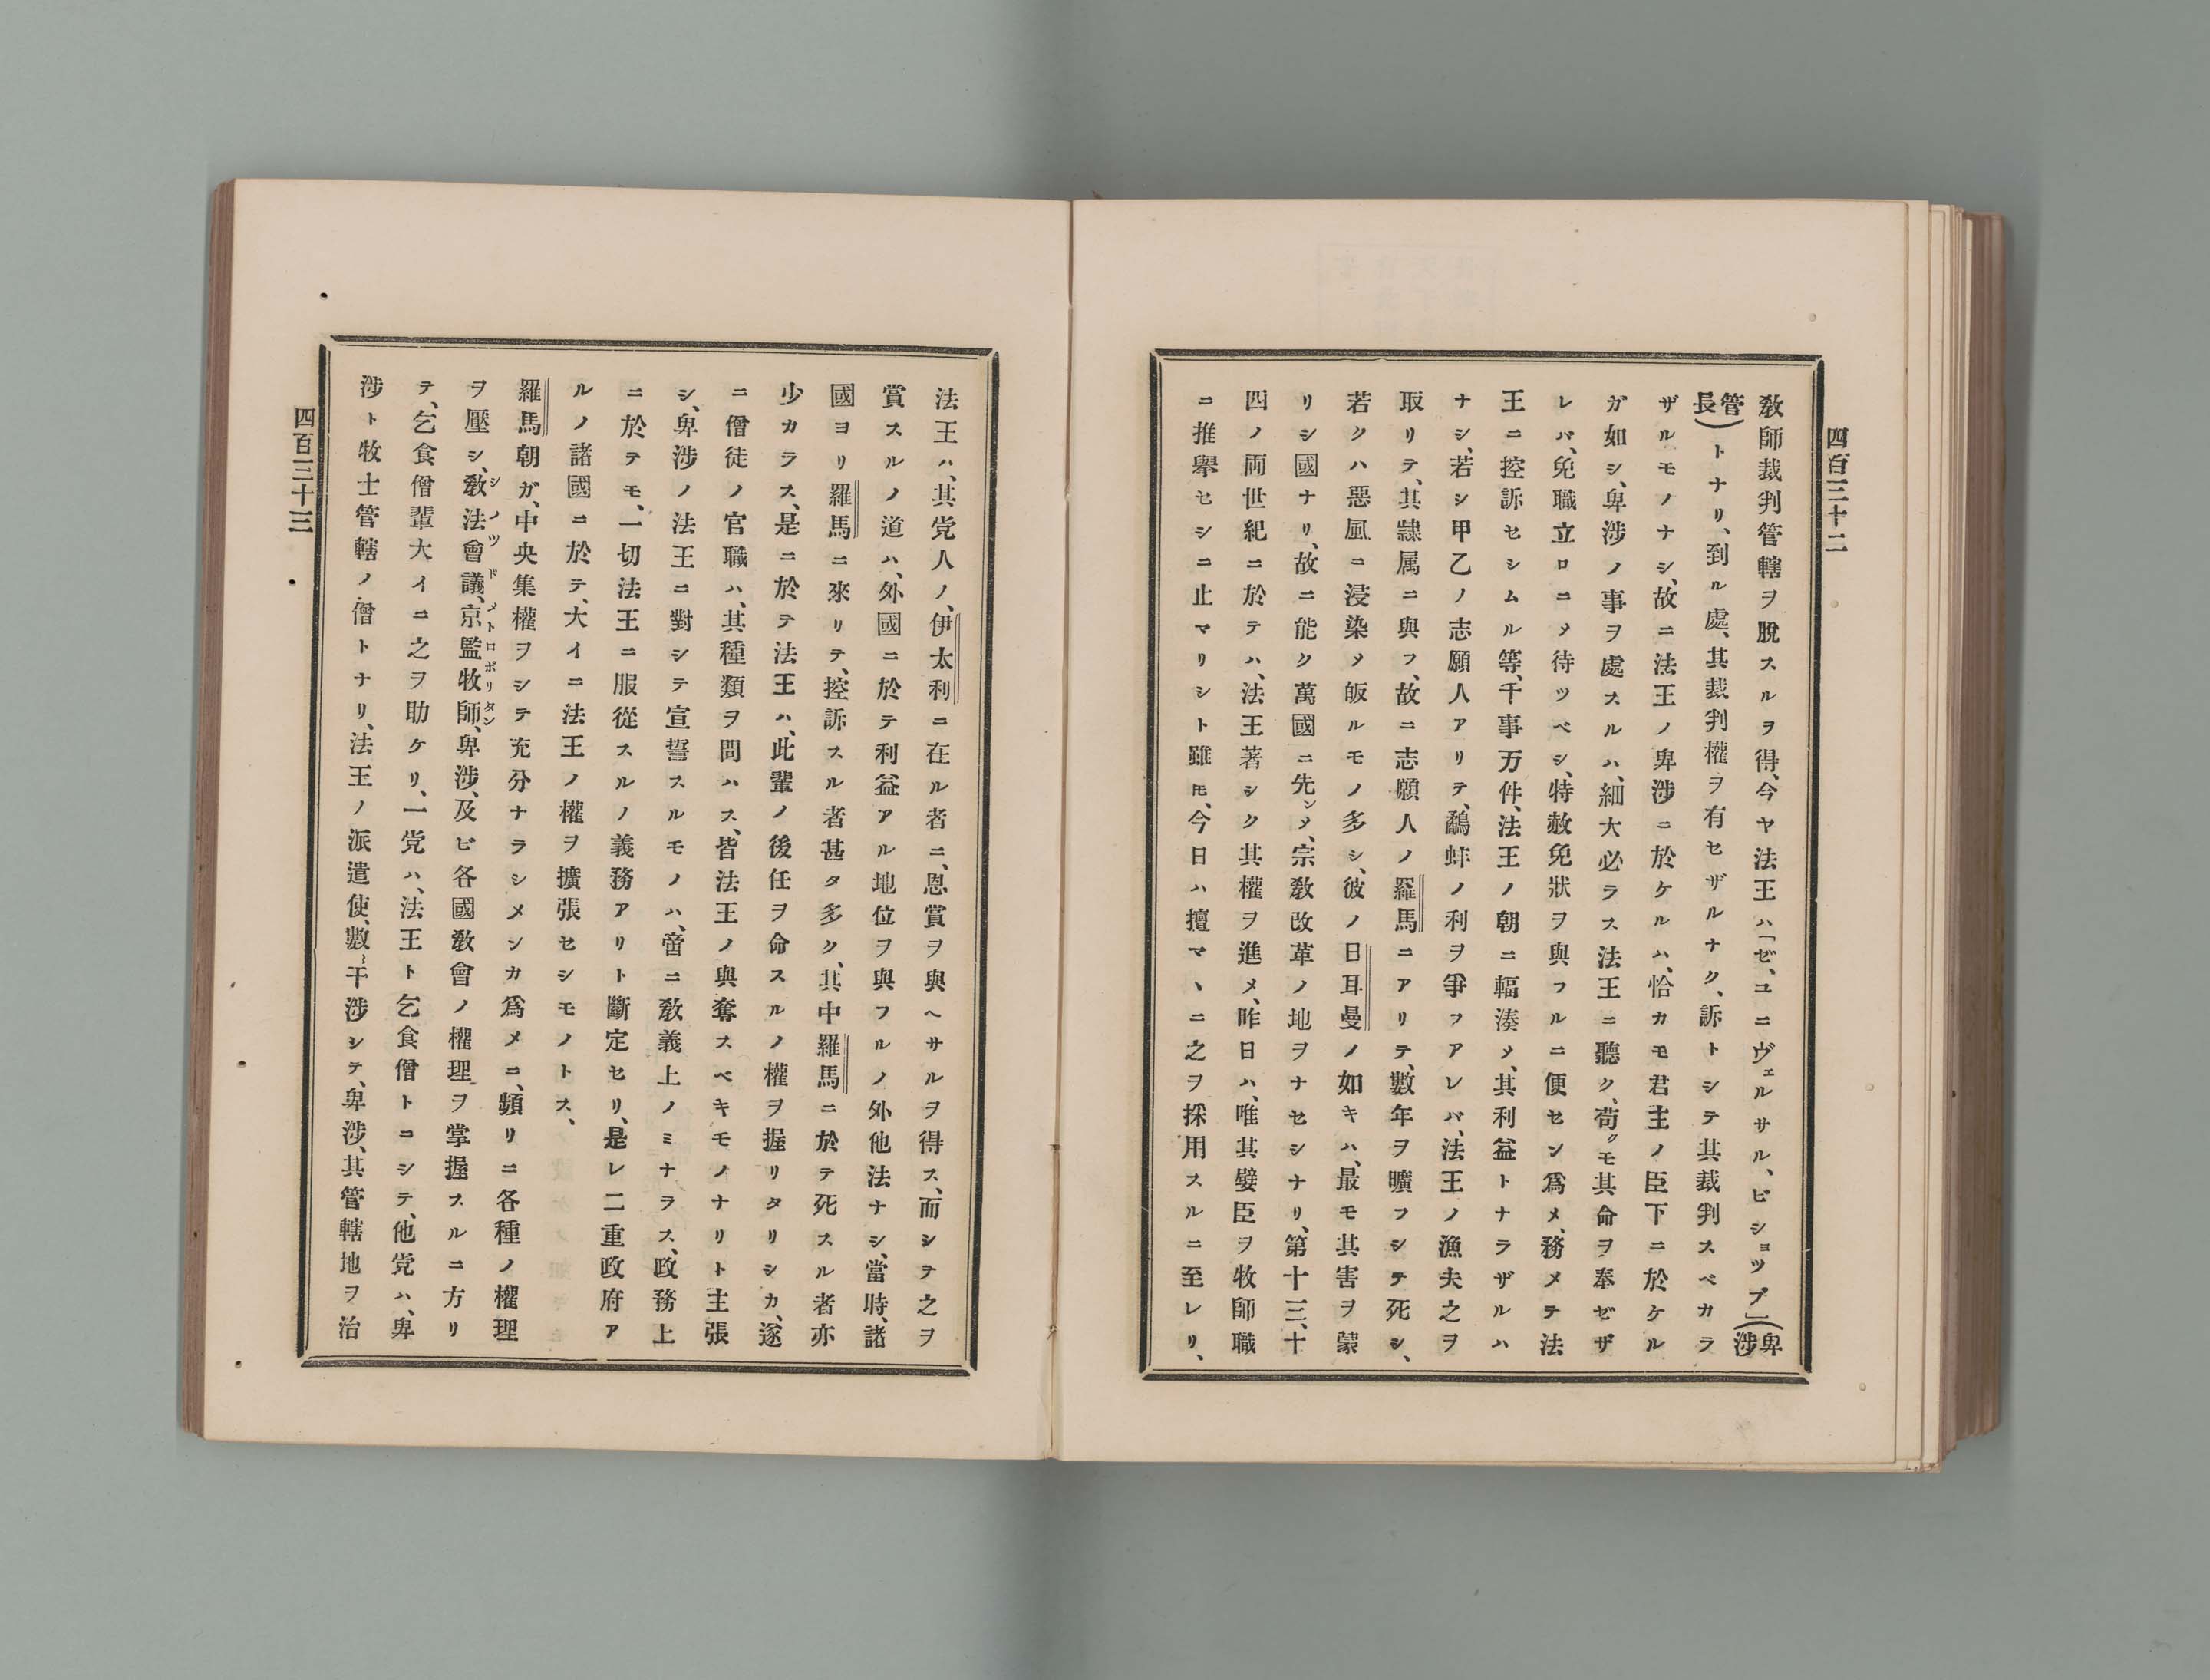 四百三十二
敎師裁判管轄ヲ脫スルヲ得、今ヤ法王ハ「ゼ、ユニヴェルサル、ビショップ」(卑涉
管長)トナリ、到ル處、其裁判權ヲ有セザルナク、訴トシテ其裁判スベカラ
ザルモノナシ、故ニ法王ノ卑涉ニ於ケルハ、恰カモ君主ノ臣下ニ於ケル
ガ如シ、卑涉ノ事ヲ處スルハ、細大必ラス法王ニ聽ク、苟クモ其命ヲ奉ゼザ
レバ、免職立ロニ〆待ツベシ、特赦免狀ヲ與フルニ便セン爲メ、務メテ法
王ニ控訴セシムル等、千事万件、法王ノ朝ニ輻湊〆、其利益トナラザルハ
ナシ、若シ甲乙ノ志願人アリテ、鷸蚌ノ利ヲ爭フアレバ、法王ノ漁夫之ヲ
取リテ、其隷属ニ與フ、故ニ志願人ノ羅馬ニアリテ、數年ヲ曠フシテ死シ、
若クハ惡風ニ浸染〆皈ルモノ多シ、彼ノ日耳曼ノ如キハ、最モ其害ヲ蒙
リシ國ナリ、故ニ能ク萬國ニ先ン〆、宗敎改革ノ地ヲナセシナリ、第十三、十
四ノ両世紀ニ於テハ、法王著シク其權ヲ進メ、昨日ハ、唯其嬖臣ヲ牧師職
ニ推擧セシニ止マリシト雖モ、今日ハ擅マヽニ之ヲ採用スルニ至レリ、
法王ハ、其党人ノ、伊太利ニ在ル者ニ、恩賞ヲ與ヘサルヲ得ス、而シテ之ヲ
賞スルノ道ハ、外國ニ於テ利益アル地位ヲ與フルノ外他法ナシ、當時、諸
國ヨリ羅馬ニ來リテ、控訴スル者甚タ多ク、其中羅馬ニ於テ死スル者亦
少カラス、是ニ於テ法王ハ、此輩ノ後任ヲ命スルノ權ヲ握リタリシカ、遂
ニ僧徒ノ官職ハ、其種類ヲ問ハス、皆法王ノ與奪スベキモノナリト主張
シ、卑涉ノ法王ニ對シテ宣誓スルモノハ、啻ニ敎義上ノミナラス、政務上
ニ於テモ、一切法王ニ服從スルノ義務アリト斷定セリ、是レ二重政府ア
ルノ諸國ニ於テ、大イニ法王ノ權ヲ擴張セシモノトス、
羅馬朝ガ、中央集權ヲシテ充分ナラシメンカ爲メニ、頻リニ各種ノ權理
ヲ壓シ、敎法會議、京監牧師、卑涉、及ビ各國敎會ノ權理ヲ掌握スルニ方リ
テ、乞食僧輩大イニ之ヲ助ケリ、一党ハ、法王ト乞食僧トニシテ、他党ハ、卑
涉ト牧士管轄ノ僧トナリ、法王ノ派遣使、數〻干涉シテ、卑涉、其管轄地ヲ治
四百三十三